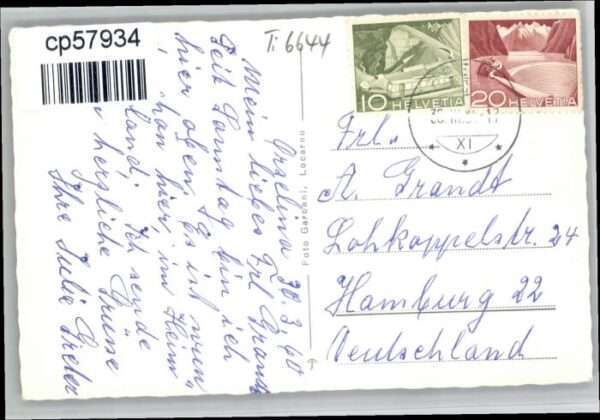 cp57934
Ti 6644
10 HELVETIA
20 HELVETIA
XI
Orselina 30.3.60
Mein liebes Frl Grandt
Seit Sonntag bin ich
hier oben. Es ist wun-
hier, im Heim
land. Ich sende
herzliche Grüsse
Ihre Julie
Foto Garbani, Locarno
Frl.
A. Grandt
Lohkoppelstr. 24
Hamburg 22
Deutschland